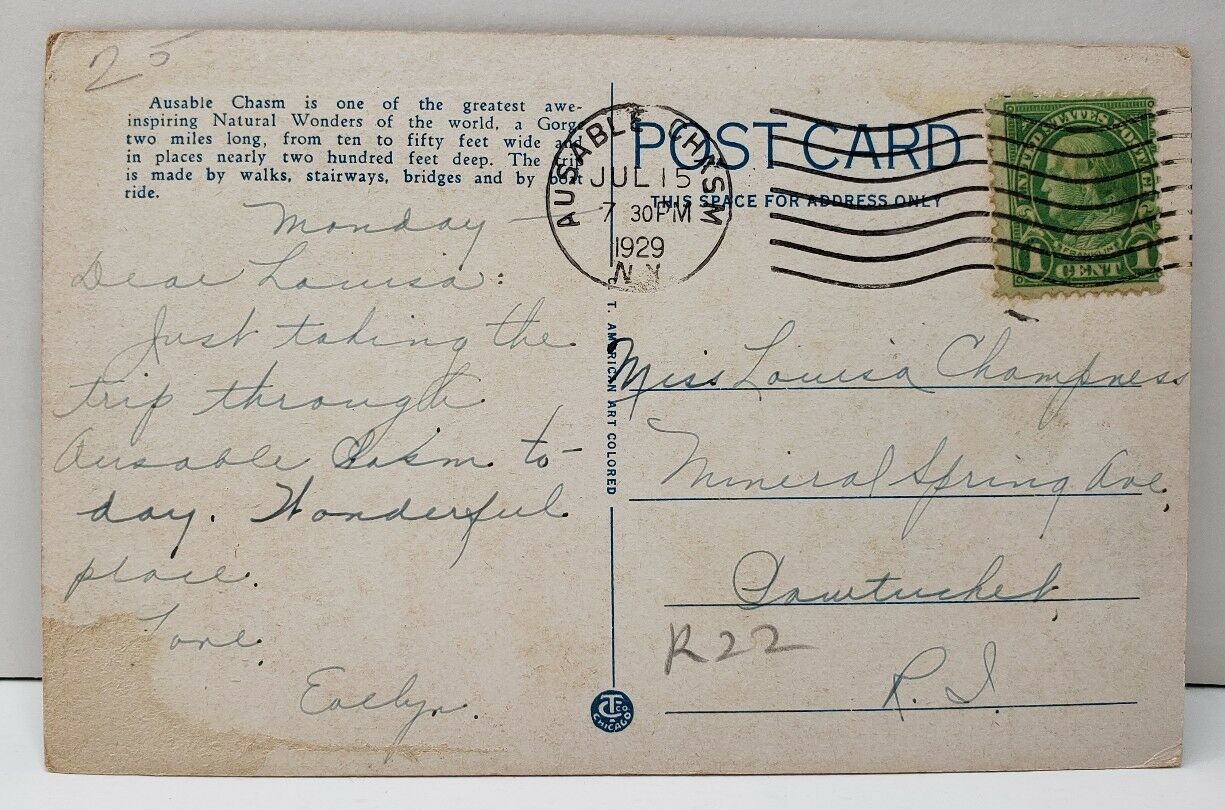 25
Ausable Chasm is one of the greatest awe-
inspiring Natural Wonders of the world, a Gorg
two miles long, from ten to fifty feet wide a
in places nearly two hundred feet deep. The trip
is made by walks, stairways, bridges and by boat
ride.
Monday
Dear Louisa:
Just taking the
trip through
Ausable Chasm to-
day. Wonderful
place.
Love
Evelyn.
AUSABLE CHASM
JUL 15
7 30 PM
1929
N.Y.
POST CARD
THIS SPACE FOR ADDRESS ONLY
UNITED STATES POSTAGE
FRANKLIN
1 CENT 1
C. T. AMERICAN ART COLORED
Miss Louisa Champness
Mineral Spring Ave,
Pawtucket
R22
R. I.
CT CO
CHICAGO